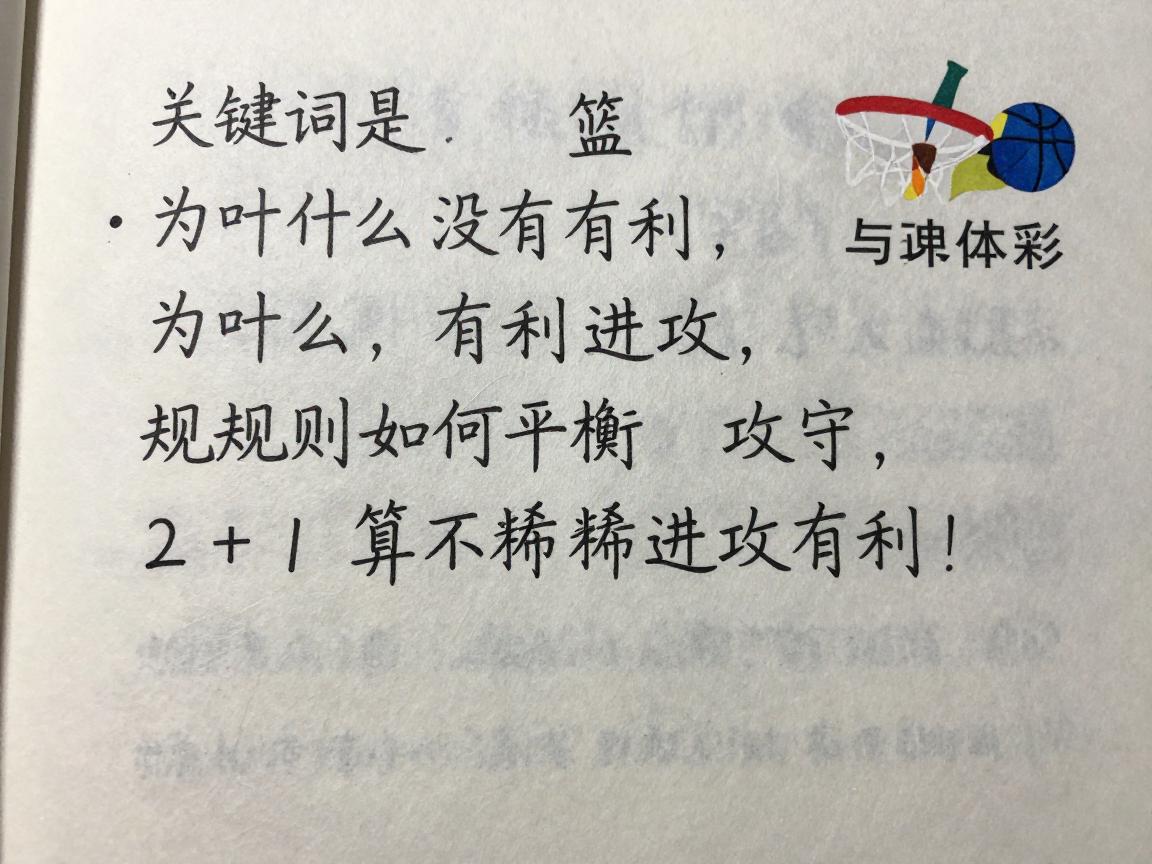 关键词是. 篮
·为叶什么没有有利，
为叶么，有利进攻，
规规则如何平衡 攻守，
2+1 算不稀稀进攻有利！
与 体彩